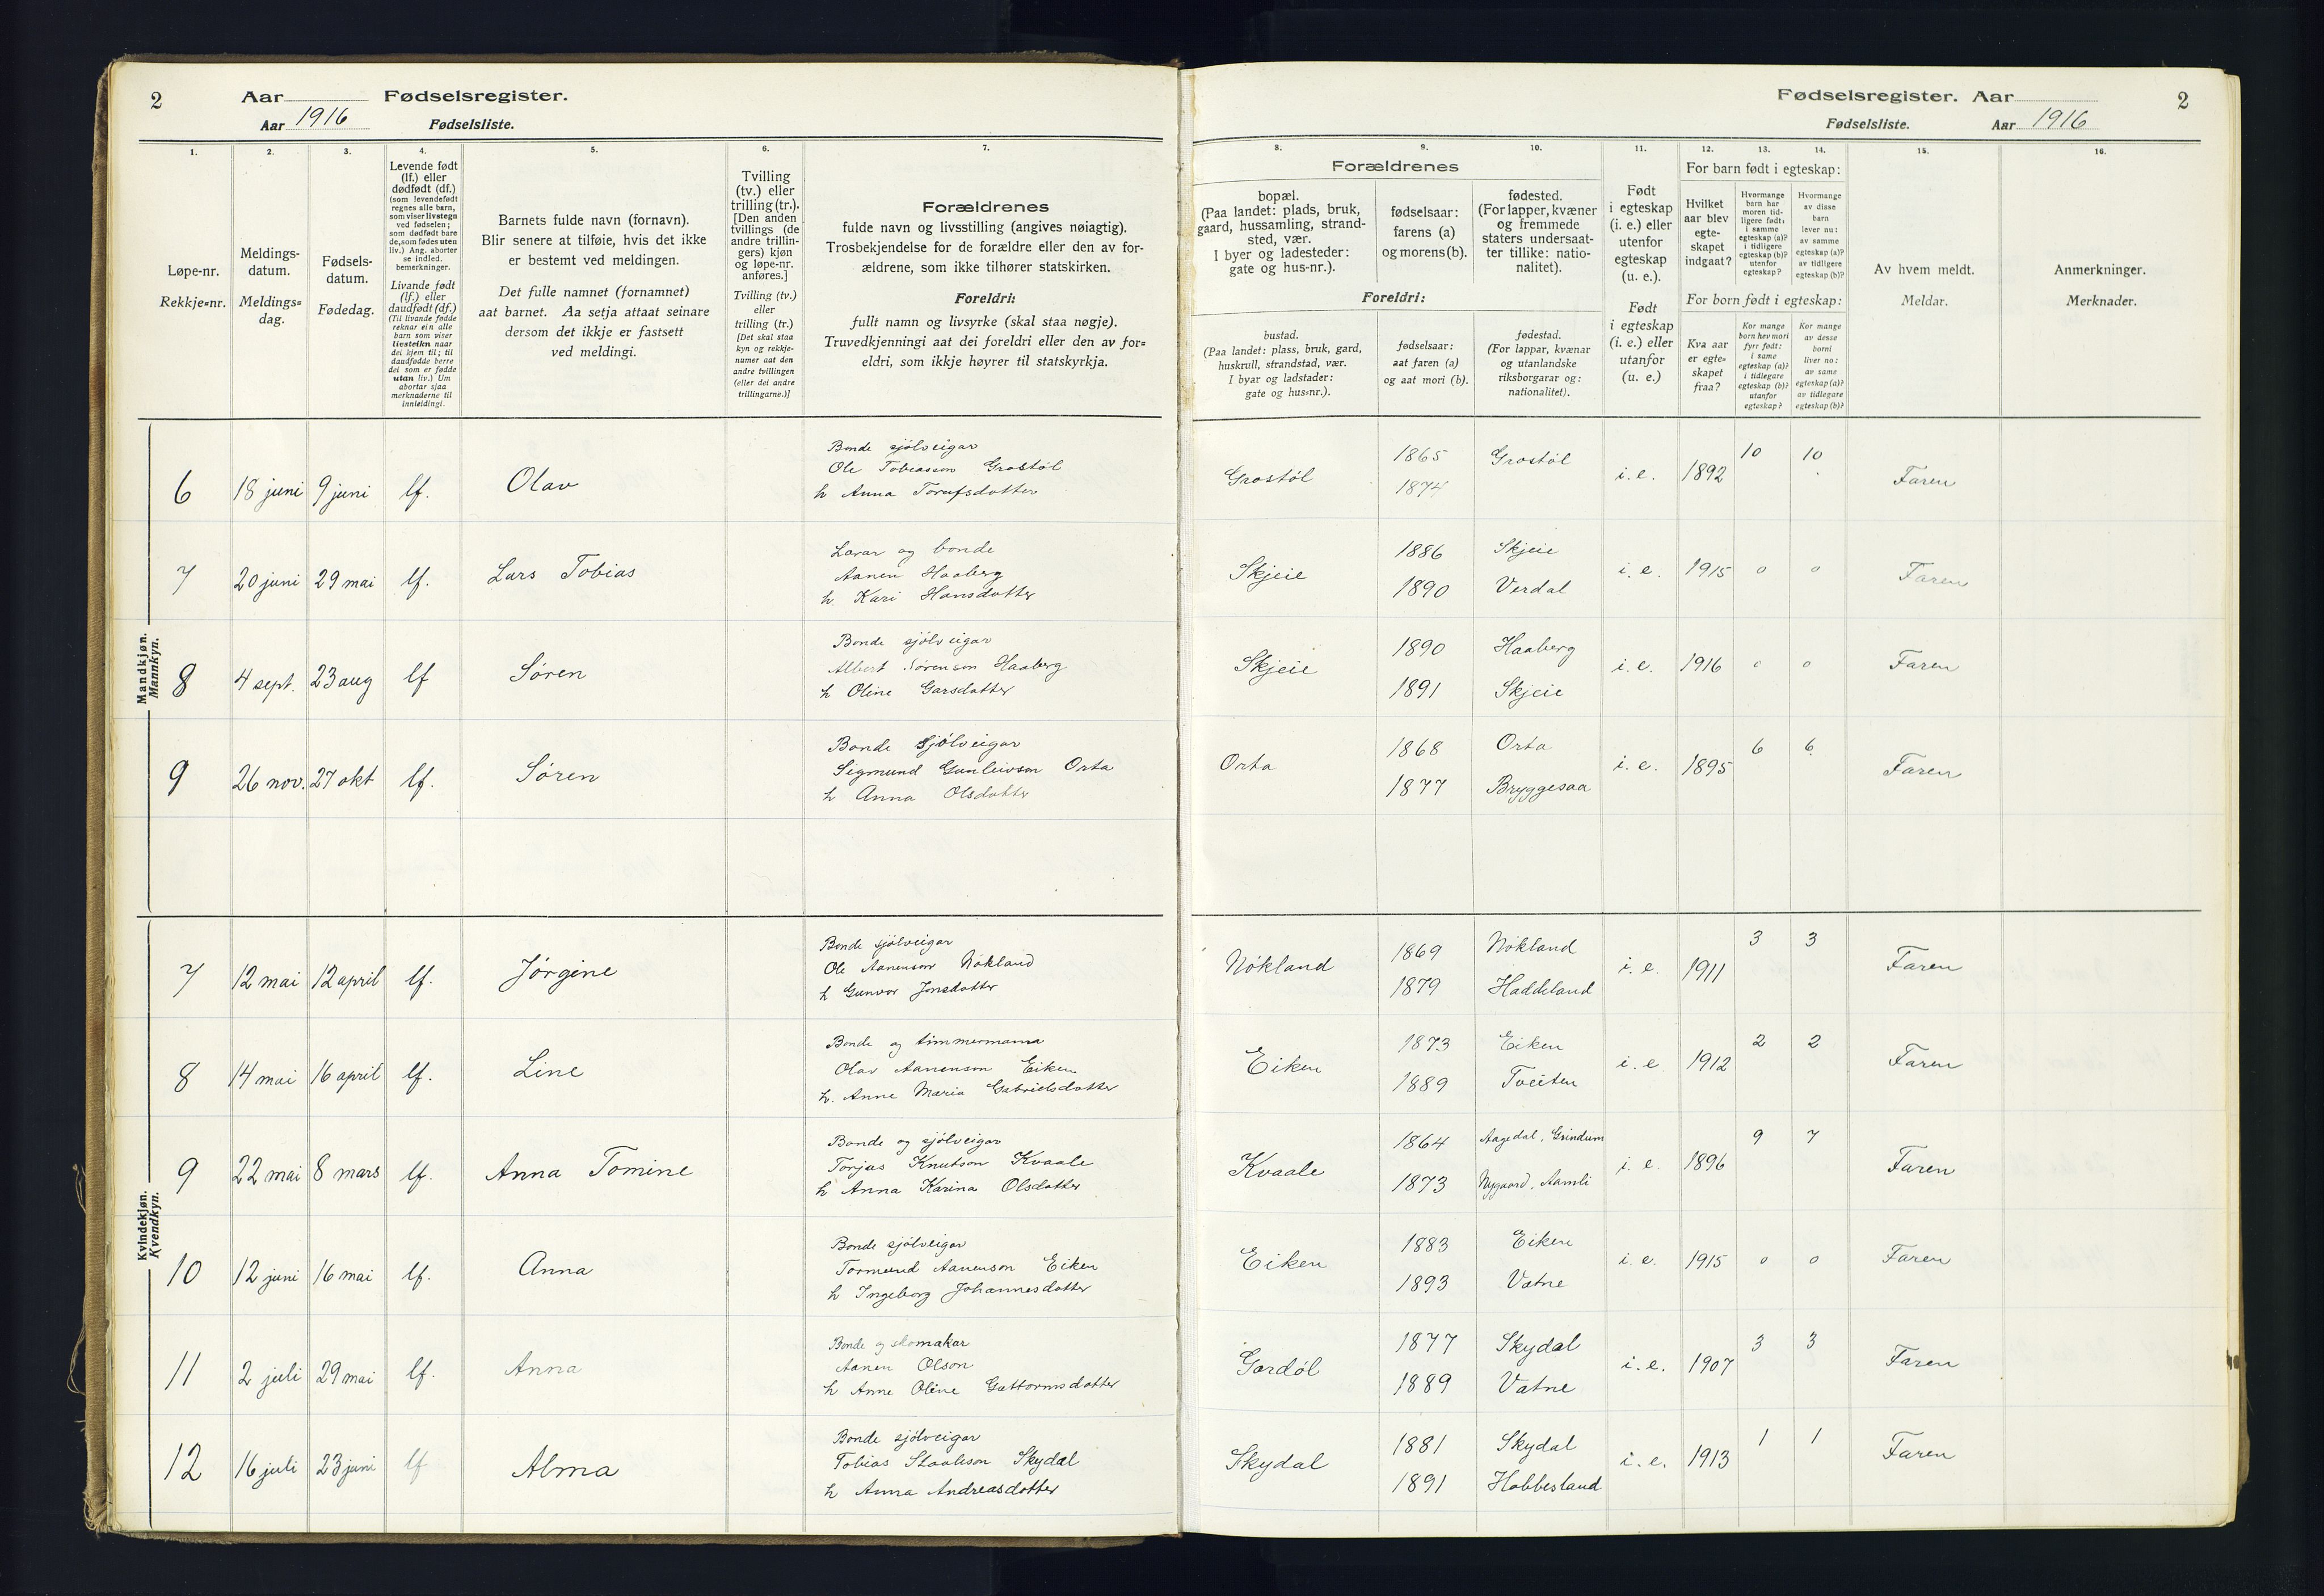 2
Aar Fødselsregister.
Aar 1916 Fødselsliste.
1. 2. 3. 4. 5. 6. 7.
Løpe-nr.
Rekkje=nr.
Meldings-
datum.
Meldings=
dag.
Fødsels-
datum.
Fødedag.
Levende født
(lf.) eller
dødfødt (df.)
(som levendefødt
regnes alle barn,
som viser livstegn
ved fødselen;
som dødfødt bare
de, som fødes uten
liv.) Ang. aborter
se indled.
bemerkninger.
Livande født
(lf.) eller
daudfødt (df.)
(Til livande fødde
reknar ein alle
barn som viser
livsteikn naar
dei kjem til; til
daudfødde berre
dei som er fødde
utan liv.) Um
abortar sjaa
merknaderne til
innleidingi.
Barnets fulde navn (fornavn).
Blir senere at tilføie, hvis det ikke
er bestemt ved meldingen.
Det fulle namnet (fornamnet)
aat barnet. Aa setja attaat seinare
dersom det ikkje er fastsett
ved meldingi.
Tvilling
(tv.) eller
trilling (tr.).
[Den anden
tvillings (de
andre trillin-
gers) kjøn
og løpe-nr.
anføres.]
Tvilling (tv.)
eller
trilling (tr.)
[Det skal staa
kyn og rekkje-
numer aat den
andre tvillingen
(eller dei andre
trillingarne.)]
Forældrenes
fulde navn og livsstilling (angives nøiagtig).
Trosbekjendelse for de forældre eller den av for-
ældrene, som ikke tilhører statskirken.
Foreldri:
fullt namn og livsyrke (skal staa nøgje).
Truvedkjenningi aat dei foreldri eller den av for=
eldri, som ikkje høyrer til statskyrkja.
Mandkjøn.
Mannkyn.
6 18 juni 9 juni lf. Olav
Bonde sjölveigar
Ole Tobiasson Grostöl
h Anna Torufsdotter
7 20 juni 29 mai lf. Lars Tobias
Lærar og bonde
Aanen Haaberg
h. Kari Hansdotter
8 4 sept. 23 aug lf Sören
Bonde sjölveigar
Albert Sörenson Haaberg
h Oline Garsdotter
9 26 nov. 27 okt lf. Sören
Bonde sjölveigar
Sigmund Gunleivson Orta
h Anna Olsdotter
Kvindekjøn.
Kvendkyn.
7 12 mai 12 april lf. Jörgine
Bonde sjölveigar
Ole Aanenson Nökland
h Gunvor Jonsdotter
8 14 mai 16 april lf. Line
Bonde og timmermann
Olav Aanenson Eiken
h. Anne Maria Gabrielsdotter
9 22 mai 8 mars lf. Anna Tomine
Bonde og sjölveigar
Torjus Knutson Kvaale
h Anna Karina Olsdotter
10 12 juni 16 mai lf. Anna
Bonde sjölveigar
Tormund Aanenson Eiken
h Ingeborg Johannesdotter
11 2 juli 29 mai lf. Anna
Bonde og skomakar
Aanen Olson
h Anne Oline Guttormsdotter
12 16 juli 23 juni lf Alma
Bonde sjölveigar
Tobias Skydal
h Anna Andreasdotter
Fødselsregister. Aar 2
Fødselsliste. Aar 1916
8. 9. 10. 11. 12. 13. 14. 15. 16.
Forældrenes
bopæl.
(Paa landet: plads, bruk,
gaard, hussamling, strand-
sted, vær.
I byer og ladesteder:
gate og hus-nr.).
fødselsaar:
farens (a)
og morens (b).
fødested.
(For lapper, kvæner
og fremmede
staters undersaat-
ter tillike: natio-
nalitet).
Foreldri:
bustad.
(Paa landet: plass, bruk, gard,
huskrull, strandstad, vær.
I byar og ladstader:
gate og hus=nr.).
fødselsaar:
aat faren (a)
og aat mori (b).
fødestad.
(For lappar, kvænar
og utanlandske
riksborgarar og:
nationalitet).
Født
i egteskap
(i. e.) eller
utenfor
egteskap
(u. e.).
Født
i egteskap
(i. e.) eller
utanfor
(u. e.)
For barn født i egteskap:
Hvilket
aar blev
egte-
skapet
indgaat?
Hvormange
barn har
moren tid-
ligere født:
i samme
egteskap (a)?
i tidligere
egteskap (b)?
utenfor
egteskap?
Hvormange
av disse
barn
lever nu:
av samme
egteskap (a)?
av tidligere
egteskap (b)?
For born født i egteskap:
Kva aar
er egte=
skapet
fraa?
Kor mange
born hev mori
fyrr født:
i same
egteskap (a)?
i tidlegare
egteskap (b)?
utanfor
egteskap?
Kor mange
av desse
borni
liver no:
av same
egteskap (a)?
av tidlegare
egteskap (b)?
Av hvem meldt.
Meldar.
Anmerkninger.
Merknader.
Grostöl 1865 Grostöl i. e. 1892 10 10 Faren
1874
Skjeie 1886 Skjeie i. e. 1915 0 0 Faren
1890 Verdal
Skjeie 1890 Haaberg i. e. 1916 0 0 Faren
1891 Skjeie
Orta 1868 Orta i. e. 1895 6 6 Faren
1877 Bryggesaa
Nökland 1869 Nökland i. e. 1911 3 3 Faren
1879 Haddeland
Eiken 1873 Eiken i. e 1912 2 2 Faren
1889 Tveiten
Kvaale 1864 Aagedal, Grindum i. e. 1896 9 7 Faren
1873 Nygaard, Aamli
Eiken 1883 Eiken i. e. 1915 0 0 Faren
1893 Vatne
Gardöl 1877 Skydal i. e. 1907 3 3 Faren
1889 Vatne
Skydal 1881 Skydal i. e. 1913 1 1 Faren
1891 Hobbesland